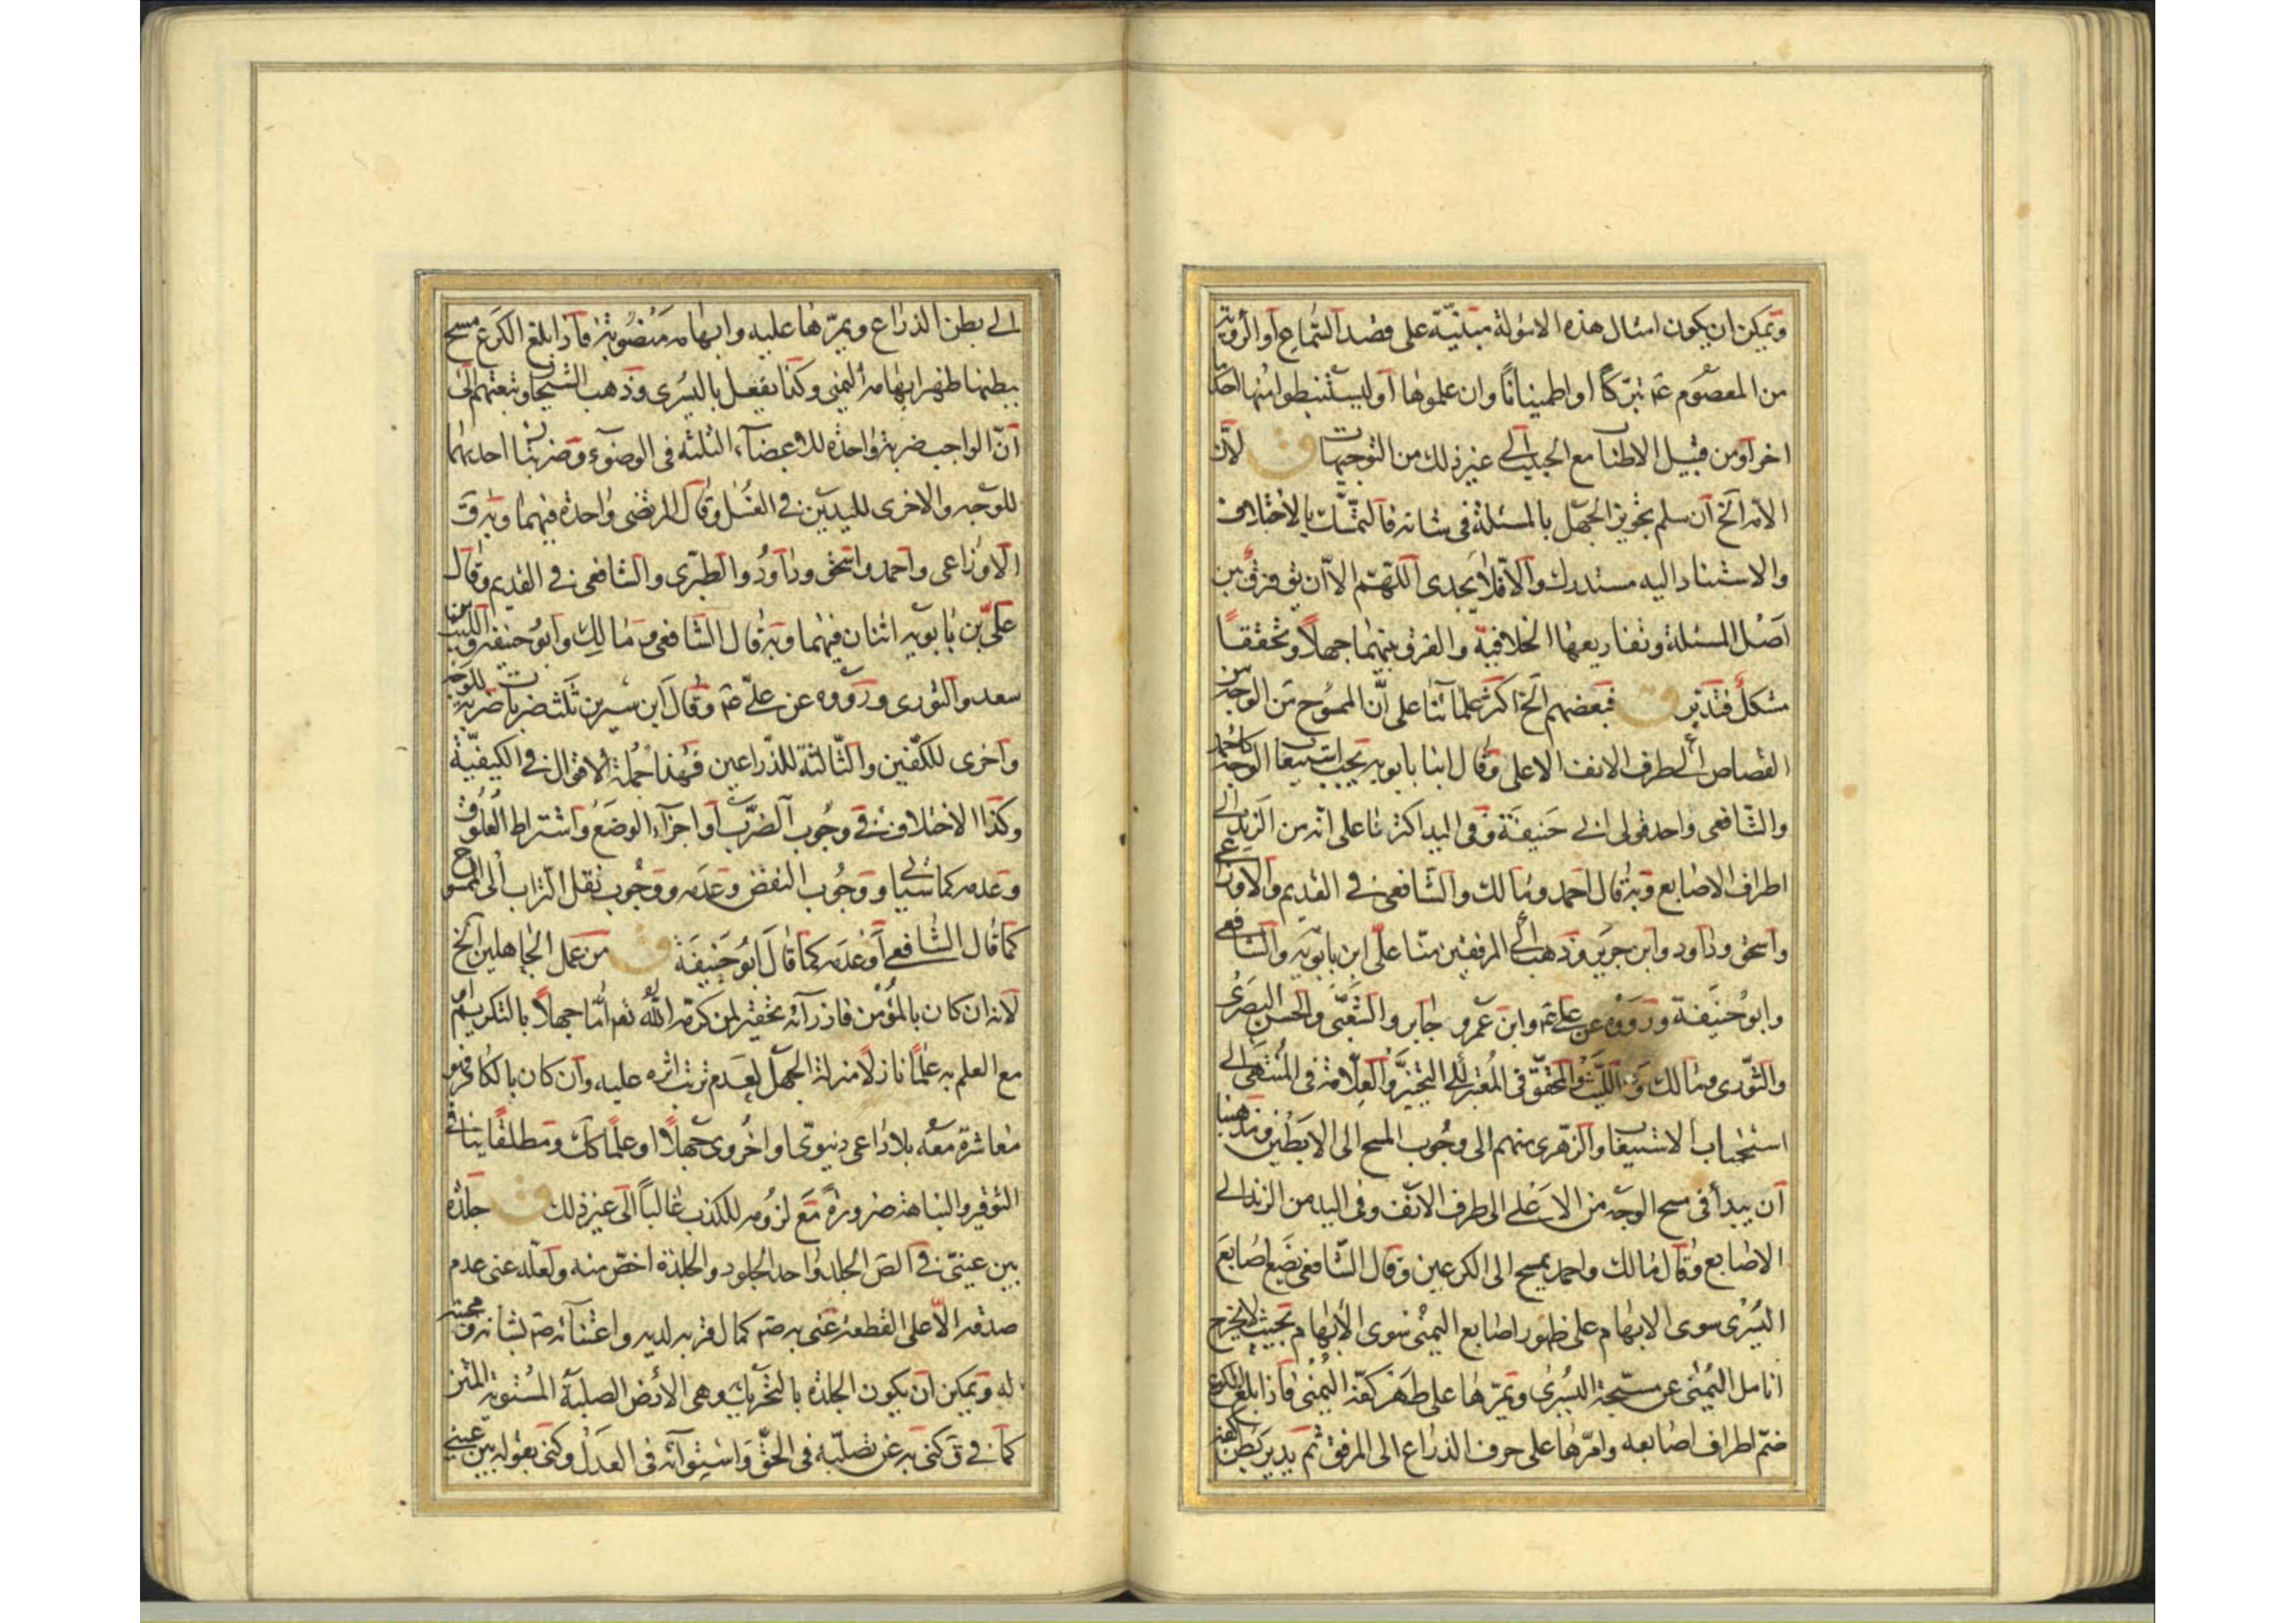 ويمكن ان يكون امثال هذه الاسولة مبتنية على قصد السماع او الرؤية
من المعصوم عم تبركًا او اطمينانًا وان علموها او ليستنبطوا منها احكا
اخر او من قبيل الاطناب مع الحبيب الى غير ذلك من التوجيهات ق لان
الامر الخ ان سلم تجويز الجهل بالمسئلة في شانه فالتمسك بالاختلاف
والاستناد اليه مستدرك والا فلا يجدى اللهم الا ان يق فرق بين
اصل المسئلة وتفاريعها الخلافية والفرق بينهما جهلاً وتحققًا
مشكل فتدبر ق فبعضهم الخ اكثر علمائنا على ان الممسوح من الوجه من
القصاص الى طرف الانف الاعلى وقال ابنا بابويه يجب استيعاب الوجه كاحمد
والشافعى واحد قولى ابى حنيفة وفى اليد اكثرنا على انه من الزند الى
اطراف الاصابع وبه قال احمد ومالك والشافعى فى القديم والاوزاعى
واسحق وداود وابن جرير وذهب الى المرفقين منا على ابن بابويه والشافعى
وابو حنيفة ورووه عن على عم وابن عمر و جابر والشعبى والحسن البصرى
والثورى ومالك والليث والمحقق فى المعتبر الى التخيير والعلامة فى المنتهى الى
استحباب الاستيعاب والزهرى منهم الى وجوب المسح الى الابطين ومذهبنا
ان يبدأ فى مسح الوجه من الاعلى الى طرف الانف وفى اليد من الزند الى
الاصابع وقال مالك واحمد يمسح الى الكرعين وقال الشافعى يضع اصابع
اليسرى سوى الابهام على ظهور اصابع اليمنى سوى الابهام بحيث لا يخرج
انامل اليمنى عن مسبحة اليسرى ويمرها على ظهر كفه اليمنى فاذا بلغ الكوع
ضم اطراف اصابعه وامرها على حرف الذراع الى المرفق ثم يدير بطن كفه
الى بطن الذراع ويمرها عليه وابهامه منصوبة فاذا بلغ الكوع مسح
ببطنها ظهر ابهامه اليمنى وكذا يفعل باليسرى وذهب الشيخان وتبعتهم الى
ان الواجب ضربة واحدة للاعضاء الثلثة فى الوضوء وضربتان احديهما
للوجه والاخرى لليدين فى الغسل وقال المرتضى واحدة فيهما وبه ق
الاوزاعى واحمد واسحق وداود والطبرى والشافعى فى القديم وقال
على بن بابويه اثنان فيهما وبه قال الشافعى ومالك وابو حنيفة والليث بن
سعد والثورى ورووه عن على عم وقال ابن سيرين ثلث ضربات ضربة للوجه
واخرى للكفين والثالثة للذراعين فهذا جملة الاقوال فى الكيفية
وكذا الاختلاف فى وجوب الضرب او اجزاء الوضع واشتراط العلوق
وعدمه كما سيأتى ووجوب النفض وعدمه ووجوب نقل التراب الى الممسوح
كما قال الشافعى او عدمه كما قال ابو حنيفة ق من عمل الجاهلين الخ
لانه ان كان بالمؤمن فازرائه تحقير لمن كرمه الله تعم اما جهلاً بالتكريم او
مع العلم به علمًا نازلاً منزلة الجهل لعدم ترتب اثره عليه وان كان بالكافر فهو
معاشرة معه بلا داعى دنيوى او اخروى جهلاً او علمًا كك ومطلقًا ينافى
التوقير والنباهة ضرورة مع لزومه للكذب غالبًا الى غير ذلك ق جلدة
بين عينى فى الص الجلد واحد الجلود والجلدة اخص منه ولعله عنى عدم
صدقه الا على القطعة عنى به صم كمال قربه لديه واعتنائه صم بشانه ومحبته
له ويمكن ان يكون الجلدة بالتحريك وهى الارض الصلبة المستوية المتن
كما فى ق كنى به عن تصلبه فى الحق واستوائه فى العدل وكنى بقوله بين عينى